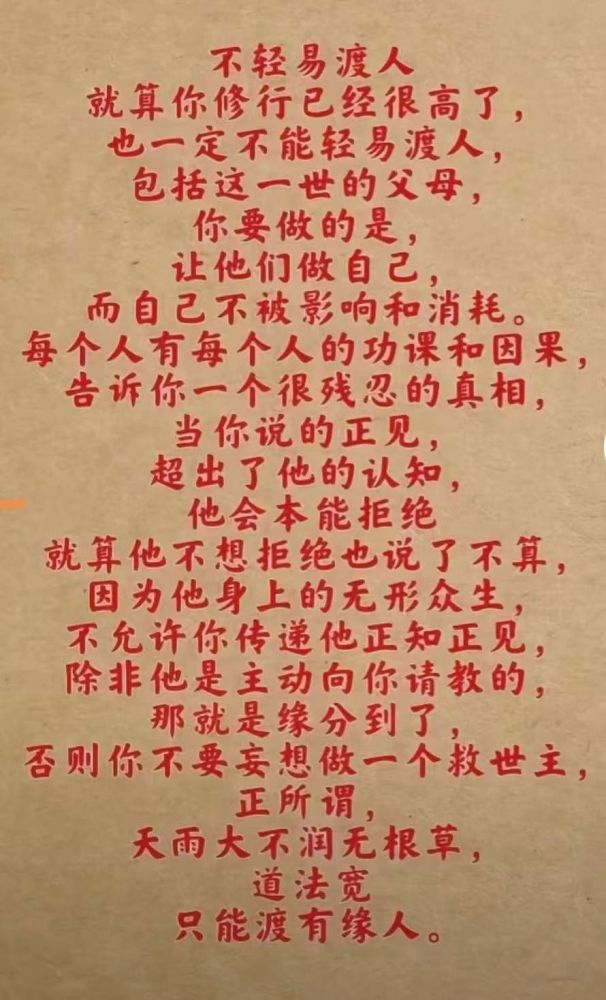 不轻易渡人
就算你修行已经很高了，
也一定不能轻易渡人，
包括这一世的父母，
你要做的是，
让他们做自己，
而自己不被影响和消耗。
每个人有每个人的功课和因果，
告诉你一个很残忍的真相，
当你说的正见，
超出了他的认知，
他会本能拒绝
就算他不想拒绝也说了不算，
因为他身上的无形众生，
不允许你传递他正知正见，
除非他是主动向你请教的，
那就是缘分到了，
否则你不要妄想做一个救世主，
正所谓，
天雨大不润无根草，
道法宽
只能渡有缘人。